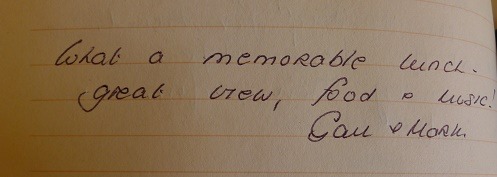 What a memorable lunch.
Great view, food & music!
Gail & Mark.